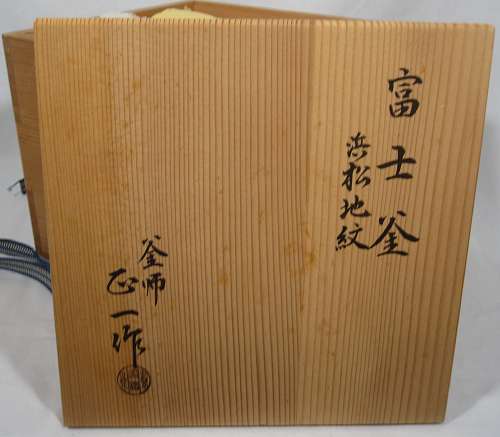 富士釜
浜松地紋
釜師
正一作